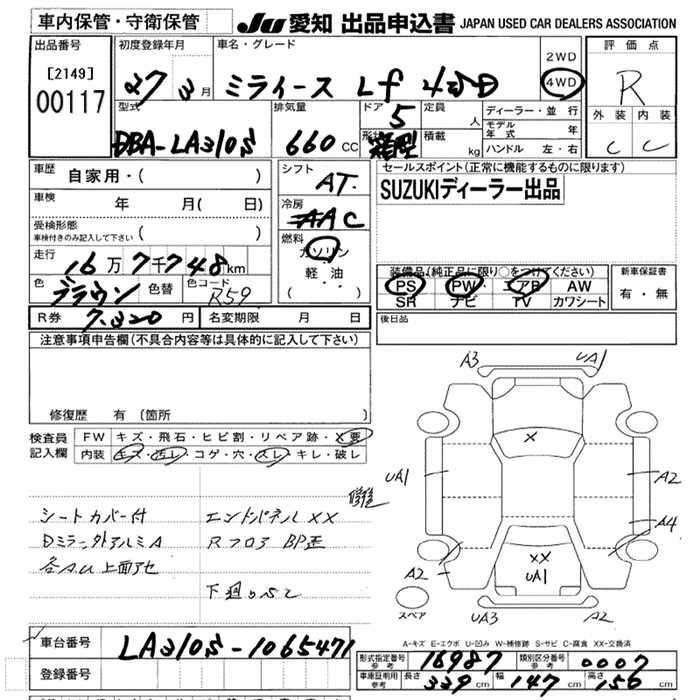 車内保管・守衛保管
JU 愛知 出品申込書 JAPAN USED CAR DEALERS ASSOCIATION
出品番号
[2149]
00117
初度登録年月
27 3月
車名・グレード
ミライース Lf 4WD
2WD
4WD
評価点
R
外装 内装
C C
型式
DBA-LA310S
排気量
660 CC
ドア 5
形状 箱型
定員 人
積載 kg
ディーラー・並行
モデル年式 年
ハンドル 左・右
車歴 自家用・( )
車検 年 月( 日)
受検形態
車検付きのみ記入して下さい ( )
走行 16万7千748km
色 ブラウン 色替 色コード R59
R券 7,320円 名変期限 月 日
シフト
AT
冷房
AAC
燃料
ガソリン
軽・油
( ・ )
セールスポイント(正常に機能するものに限ります)
SUZUKIディーラー出品
装備品(純正品に限り○をつけてください)
PS PW エアB AW
SR ナビ TV カワシート
新車保証書
有・無
後日品
注意事項申告欄(不具合内容等は具体的に記入して下さい)
修復歴 有(箇所 )
検査員記入欄
FW キズ・飛石・ヒビ割・リペア跡・X要
内装 キズ・汚レ・コゲ・穴・スレ・キレ・破レ
シートカバー付
Dミラー外アルミA
各AU上面アセ
エンドパネルXX
Rフロア BP歪
下廻りSC
修復
A3 UA1
X
UA1 A2
A4
A2
XX
UA1
UA3 A2
スペア
A-キズ E-エクボ U-凹み W-補修跡 S-サビ C-腐食 XX-交換済
車台番号 LA310S-1065471
登録番号
形式指定番号 参考 16987 類別区分番号 参考 0007
車庫証明用 参考 長さ 339cm 幅 147cm 高さ 156cm